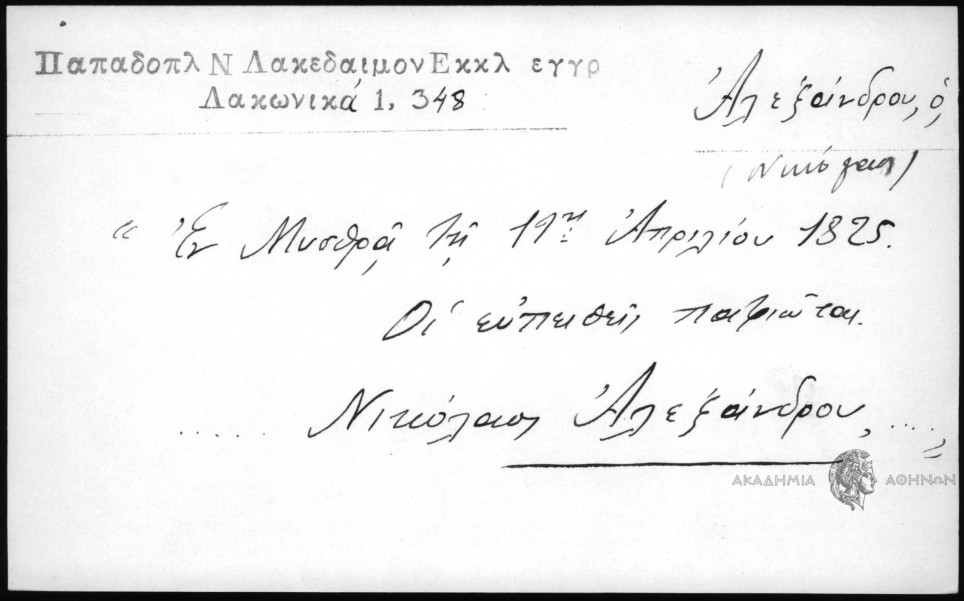 Παπαδοπλ Ν Λακεδαιμον Εκκλ εγγρ
Λακωνικά 1, 348
Ἀλεξάνδρου, ὁ
(Νικόλαος)
"Ἐν Μυσθρᾷ τῇ 19ῃ Ἀπριλίου 1825.
Οἱ εὐπειθεῖς πατριῶται.
..... Νικόλαος Ἀλεξάνδρου, ....."
ΑΚΑΔΗΜΙΑ ΑΘΗΝΩΝ